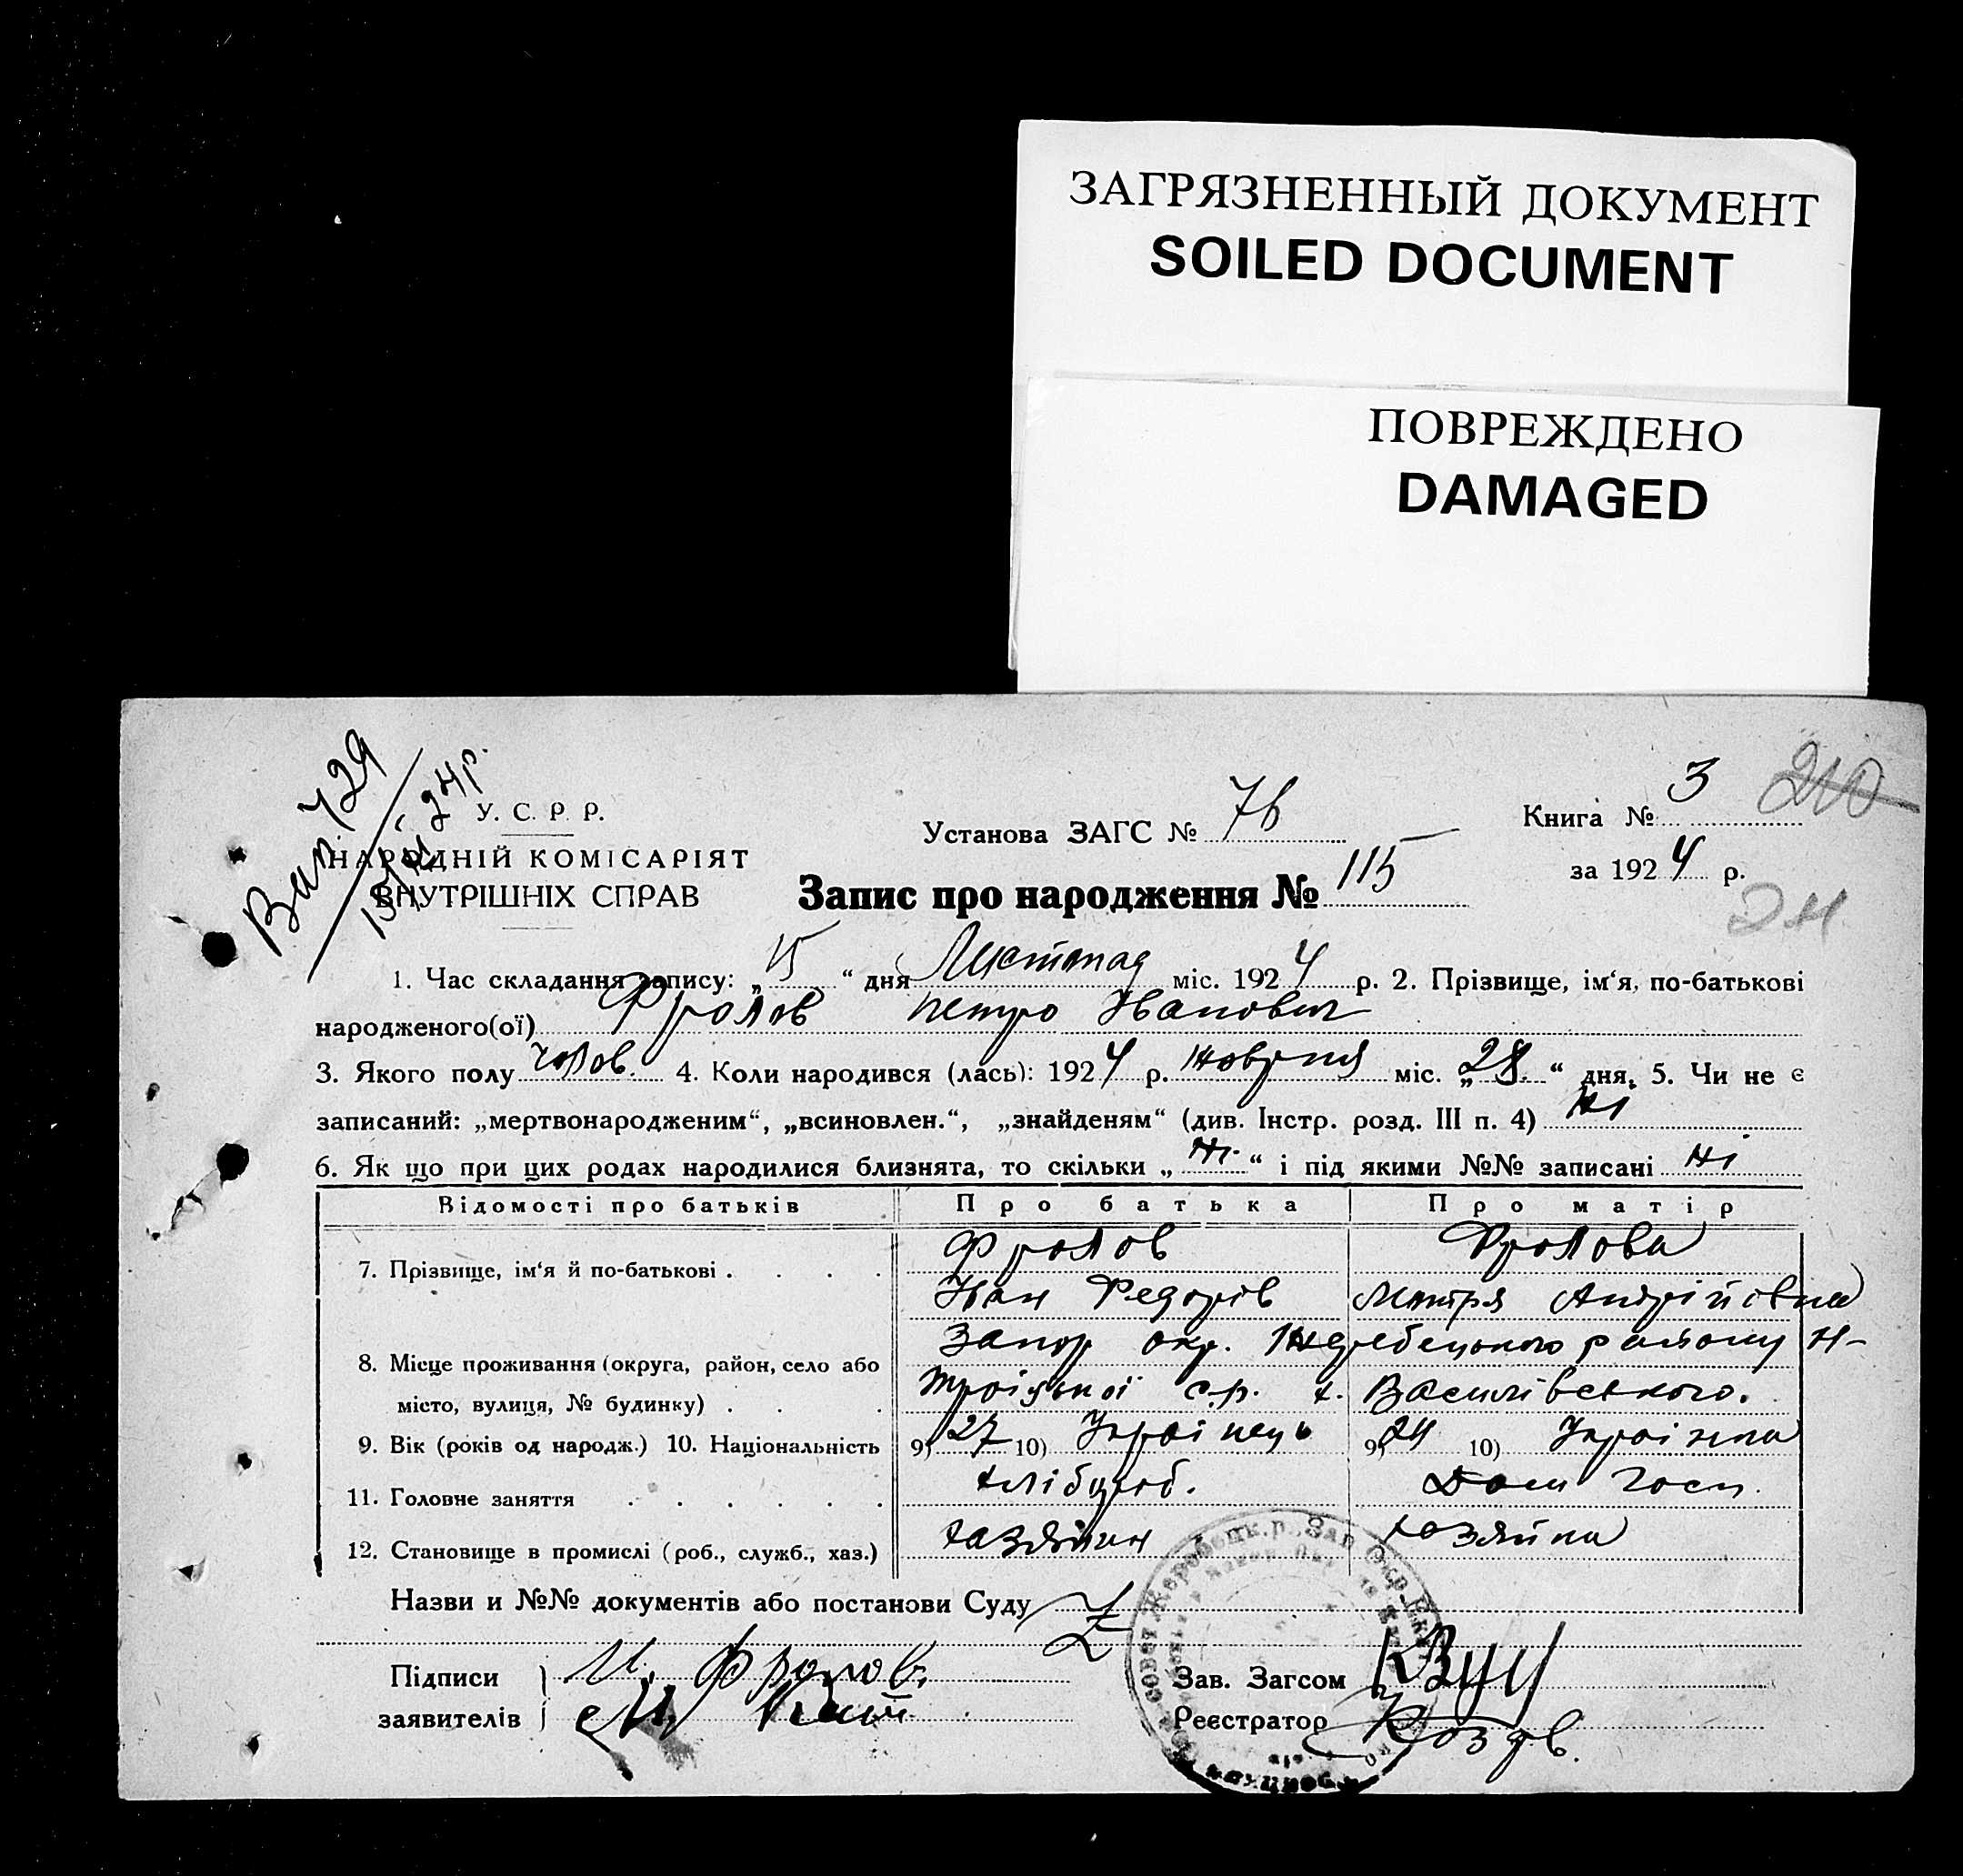 ЗАГРЯЗНЕННЫЙ ДОКУМЕНТ
SOILED DOCUMENT
ПОВРЕЖДЕНО
DAMAGED
Вип. 729
У. С. Р. Р.
НАРОДНІЙ КОМІСАРІЯТ
ВНУТРІШНІХ СПРАВ
Установа ЗАГС № 76
Книга № 3 210
за 1924 р.
Запис про народження № 115
1. Час складання запису: „15“ дня Листопад міс. 1924 р. 2. Прізвище, ім‘я, по-батькові
народженого(ої) Фролов Петро Иванович
3. Якого полу чолов. 4. Коли народився (лась): 1924 р. жовтня міс. „28.“ дня. 5. Чи не є
записаний: „мертвонародженим“, „всиновлен.“, „знайденям“ (див. Інстр. розд. III п. 4) ні
6. Як що при цих родах народилися близнята, то скільки „ні“ і під якими №№ записані ні
Відомості про батьків Про батька Про матір
7. Прізвище, ім‘я й по-батькові . . . . Фролов Фролова
Иван Федорів Мотря Андрійовна
8. Місце проживання (округа, район, село або Запор окр. Жеребецького району Н-
місто, вулиця, № будинку) . . . Троіцькоі с.р. х. Василівського.
9. Вік (років од народж.) 10. Національність 9) 27 10) Украінець 9) 24 10) Украінка
11. Головне заняття . . . . . . хлібороб. Дом госп.
12. Становище в промислі (роб., служб., хаз.) хазяїин хозяйка
Назви и №№ документів або постанови Суду Z
Підписи И. Фролов
заявителів
Зав. Загсом
Реєстратор